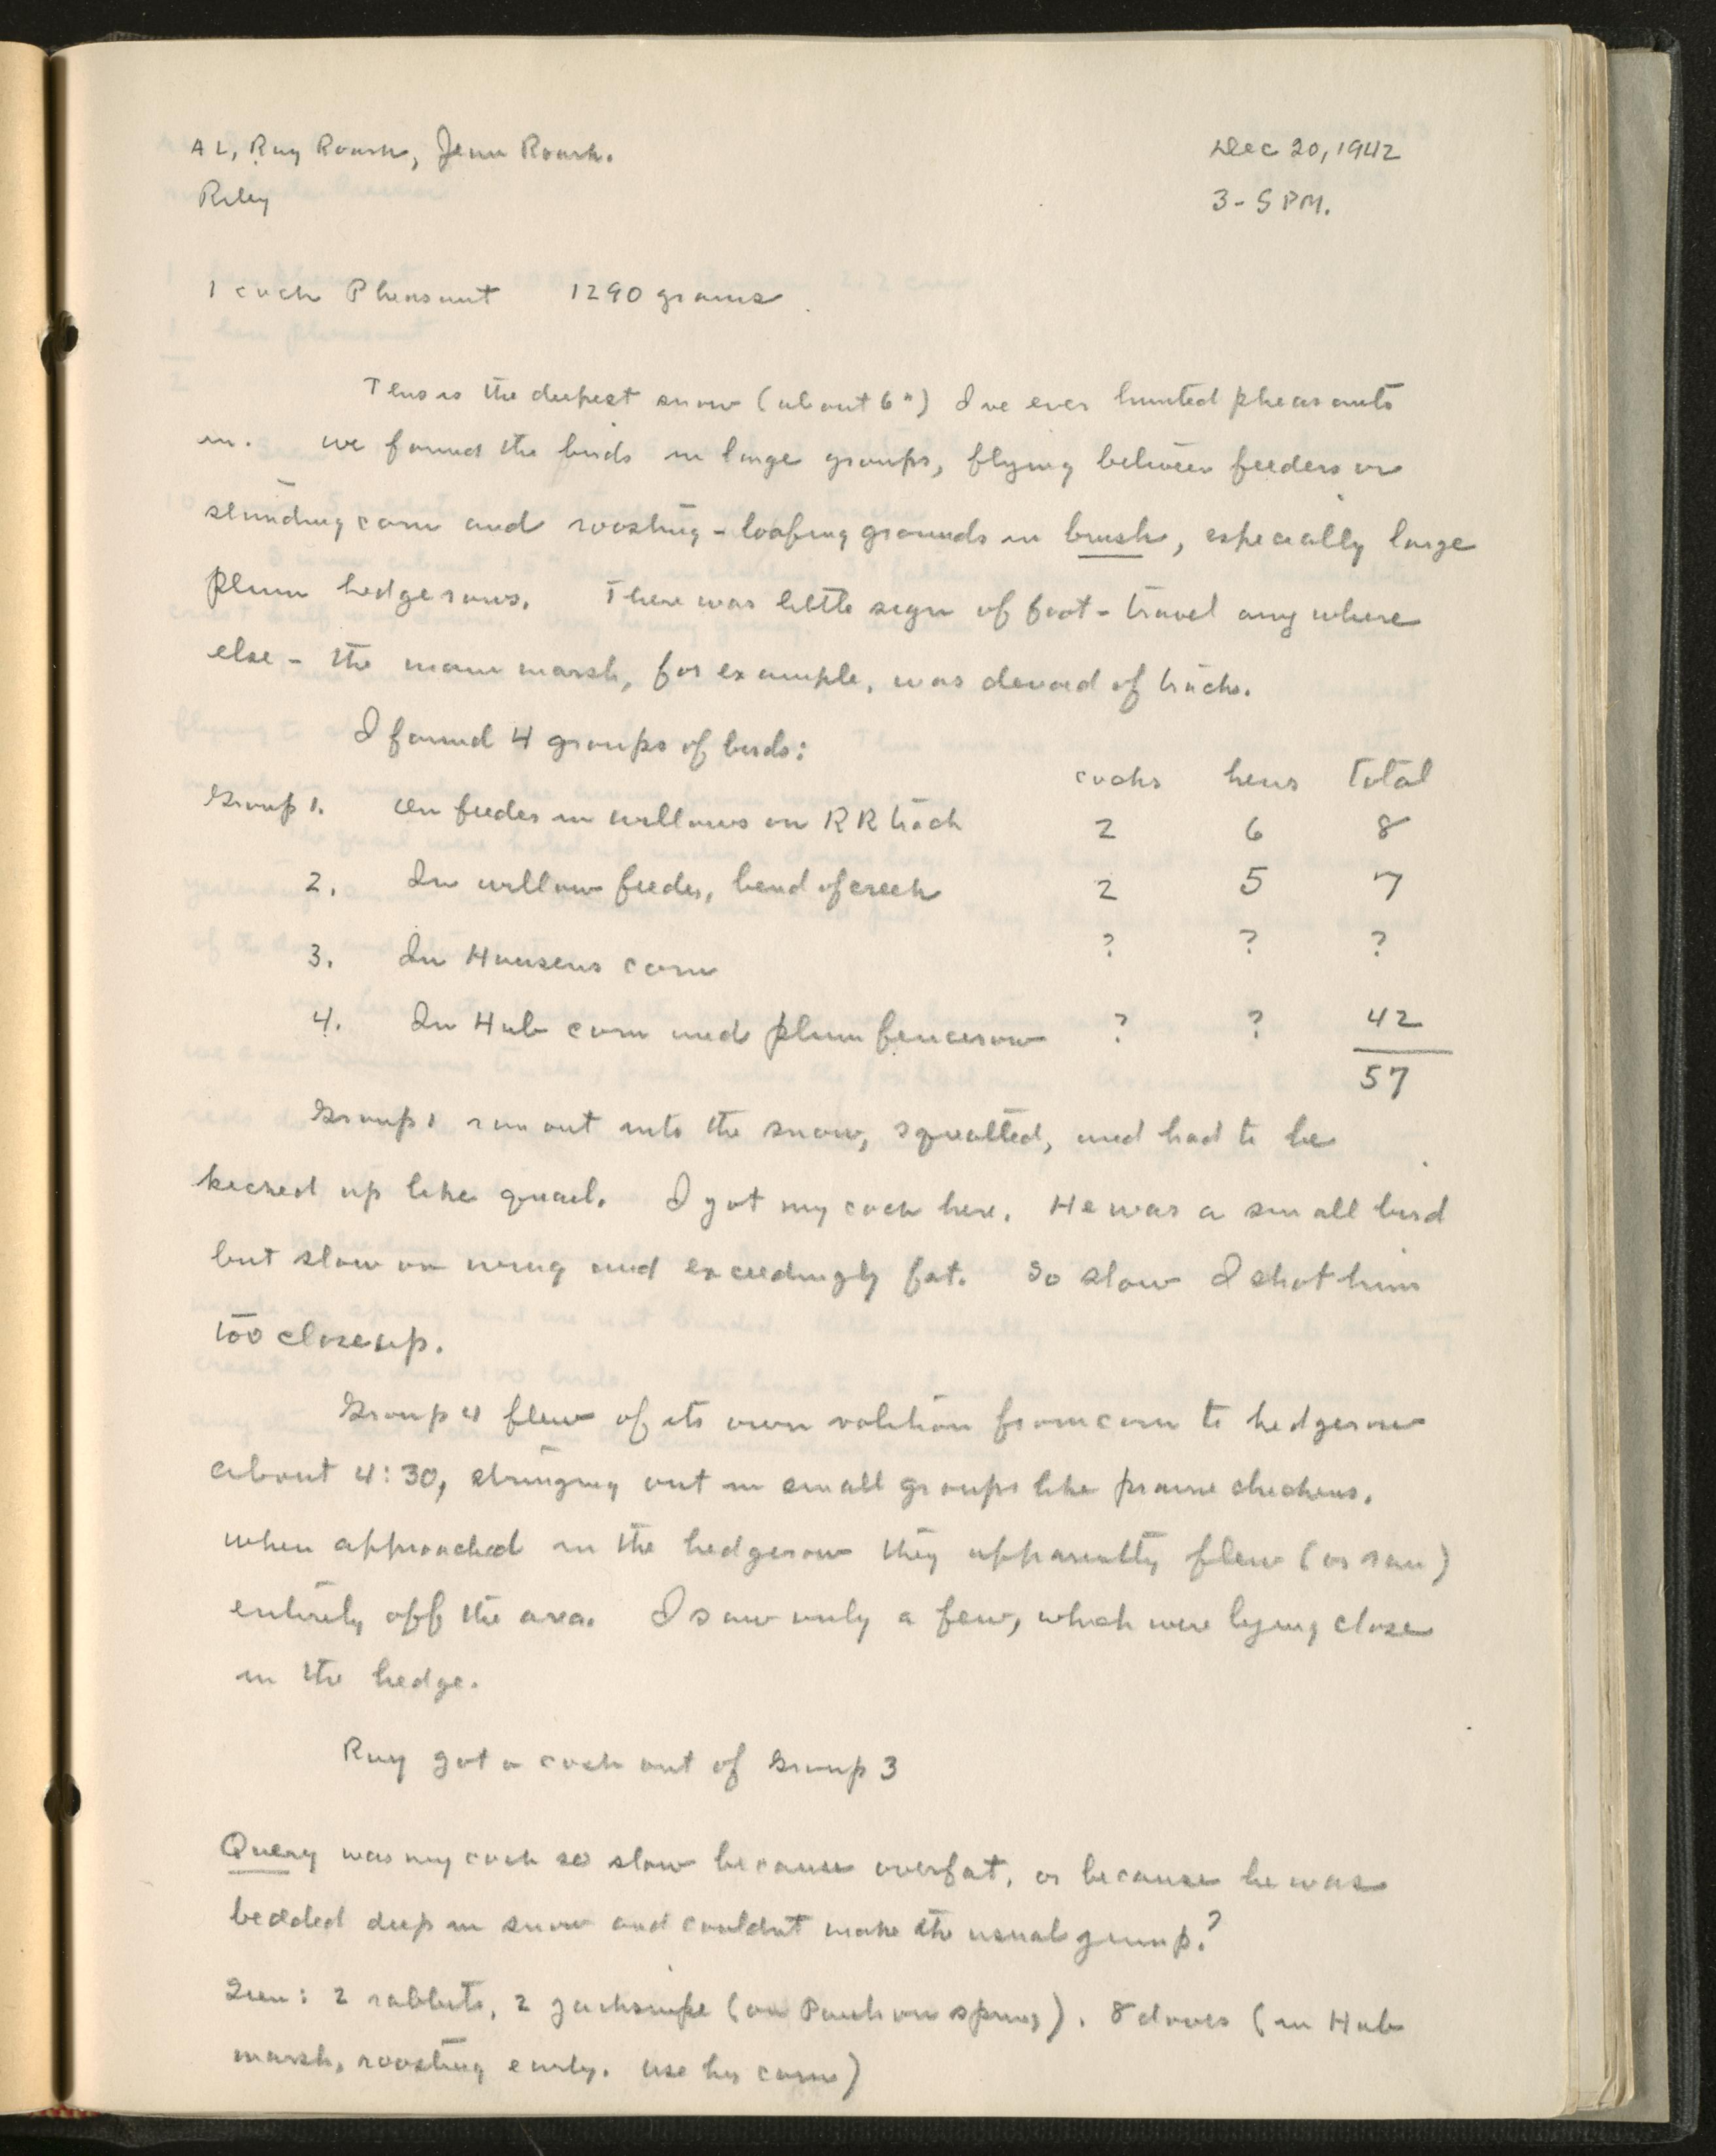 AL, Ray Roark, Jenn Roark.
Dec 20, 1942
Riley
3-5 PM.
1 cock Pheasant 1290 grams
This is the deepest snow (about 6") I've ever hunted pheasants
in. We found the birds in large groups, flying between feeders or
standing corn and roosting-loafing grounds in brush, especially large
plum hedgerows. There was little sign of foot-travel anywhere
else - the main marsh, for example, was devoid of tracks.
I found 4 groups of birds:
cocks hens Total
Group 1. On feeder in willows on RR track 2 6 8
2. In willow feeder, bend of creek 2 5 7
3. In Hansens corn ? ? ?
4. In Hub corn and plum fencerow ? ? 42
57
Group 1 ran out into the snow, squatted, and had to be
kicked up like quail. I got my cock here. He was a small bird
but slow on wing and exceedingly fat. So slow I shot him
too close up.
Group 4 flew of its own volition from corn to hedgerow
about 4:30, stringing out in small groups like prairie chickens.
When approached in the hedgerow they apparently flew (or ran)
entirely off the area. I saw only a few, which were lying close
in the hedge.
Ray got a cock out of Group 3
Query was my cock so slow because overfat, or because he was
bedded deep in snow and couldnt make the usual jump?
Seen: 2 rabbits, 2 jacksnipe (on Paulson spring). 8 doves (in Hub
marsh, roosting early. Use his corn)